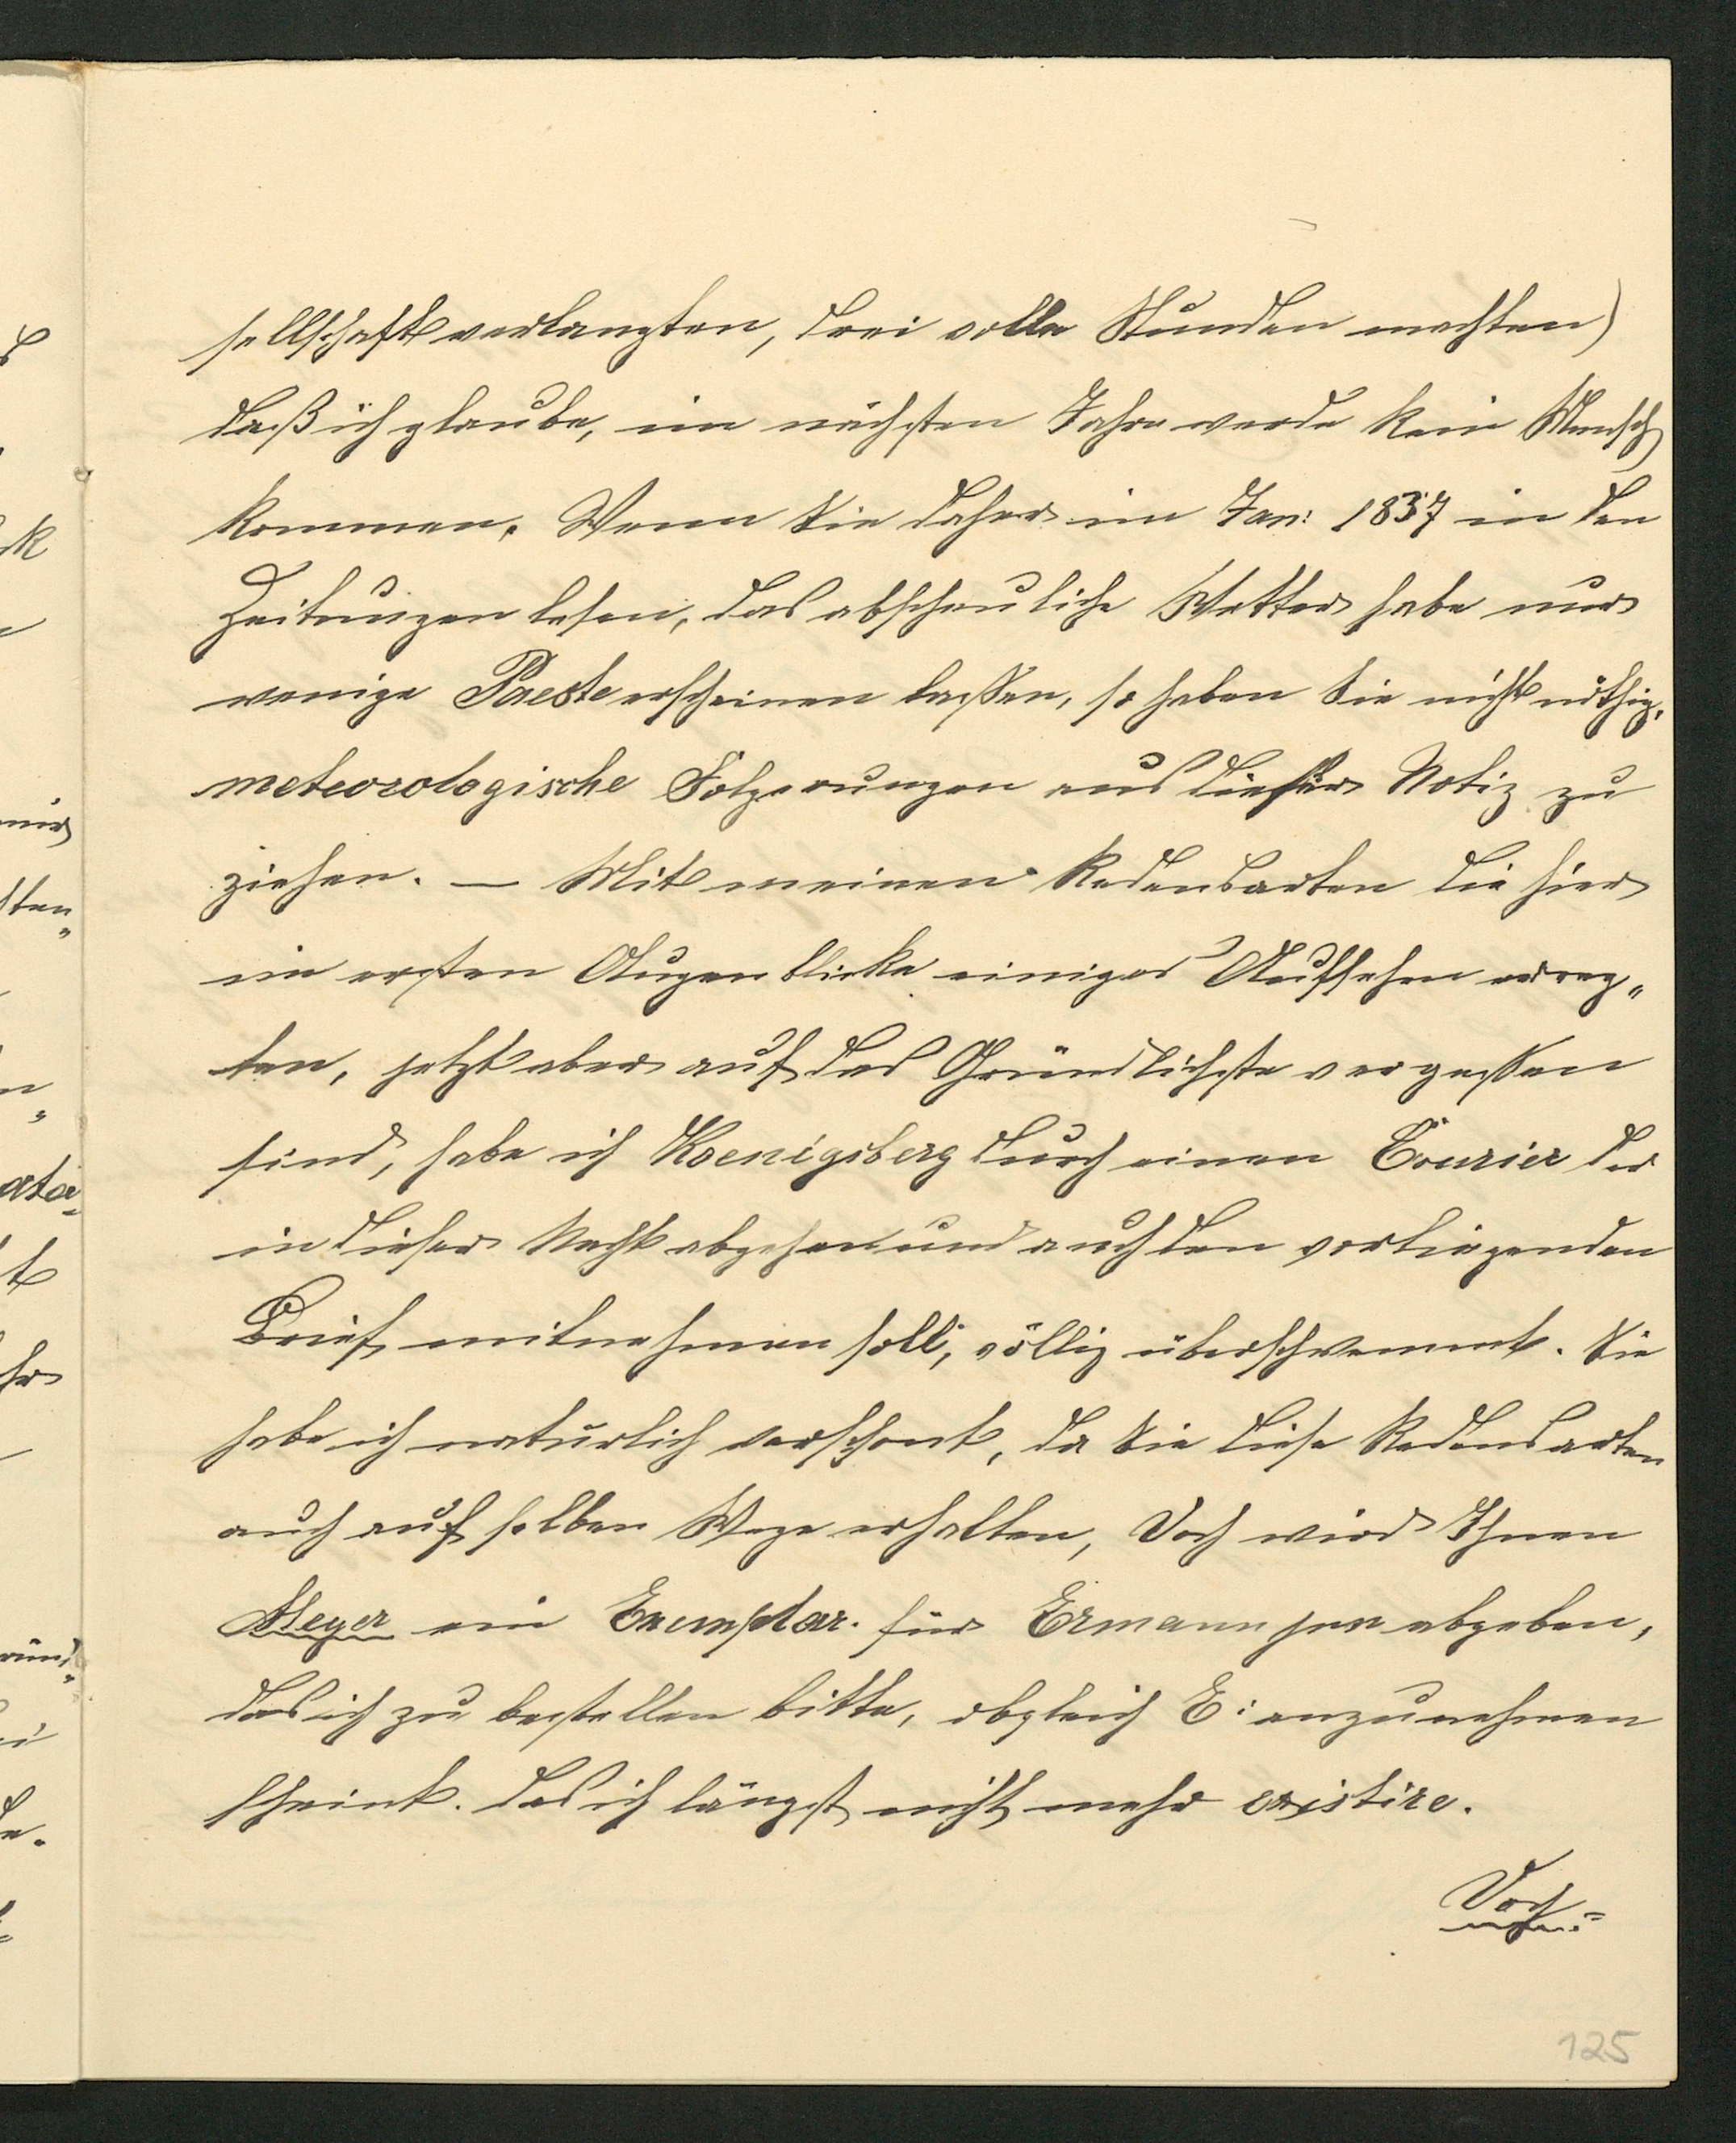 sellschaft verlangten, drei volle Stunden machten)
daß ich glaube, im nächsten Jahre werde kein Mensch
kommen. Wenn Sie daher im Jan: 1837 in den
Zeitungen lesen, das abscheuliche Wetter habe nur
wenige Paeste erscheinen lassen, so haben Sie nicht nöthig,
meteorologische Folgerungen aus dieser Notiz zu
ziehen. — Mit meinen Redensarten die hier
im ersten Augenblicke einiges Aufsehen erreg„
ten, jetzt aber auf das Gründlichste vergessen
sind, habe ich Koenigsberg durch einen Courier der
in dieser Nacht abgehen und auch den vorliegenden
Brief mitnehmen soll, völlig überschwemmt. Sie
habe ich natürlich verschont, da Sie diese Redensarten
auch auf selben Wege erhalten, Doch wird Ihnen
Meyer ein Exemplar. für Ermann jun abgeben,
das ich zu bestellen bitte, obgleich E: anzunehmen
scheint. das ich längst nicht mehr existire.
Doch
125